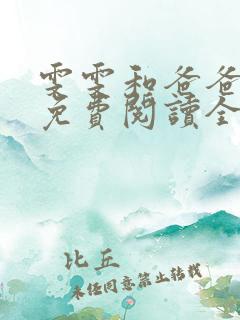 雯雯和爸爸
免費閱讀全
比丘
未经同意禁止转载